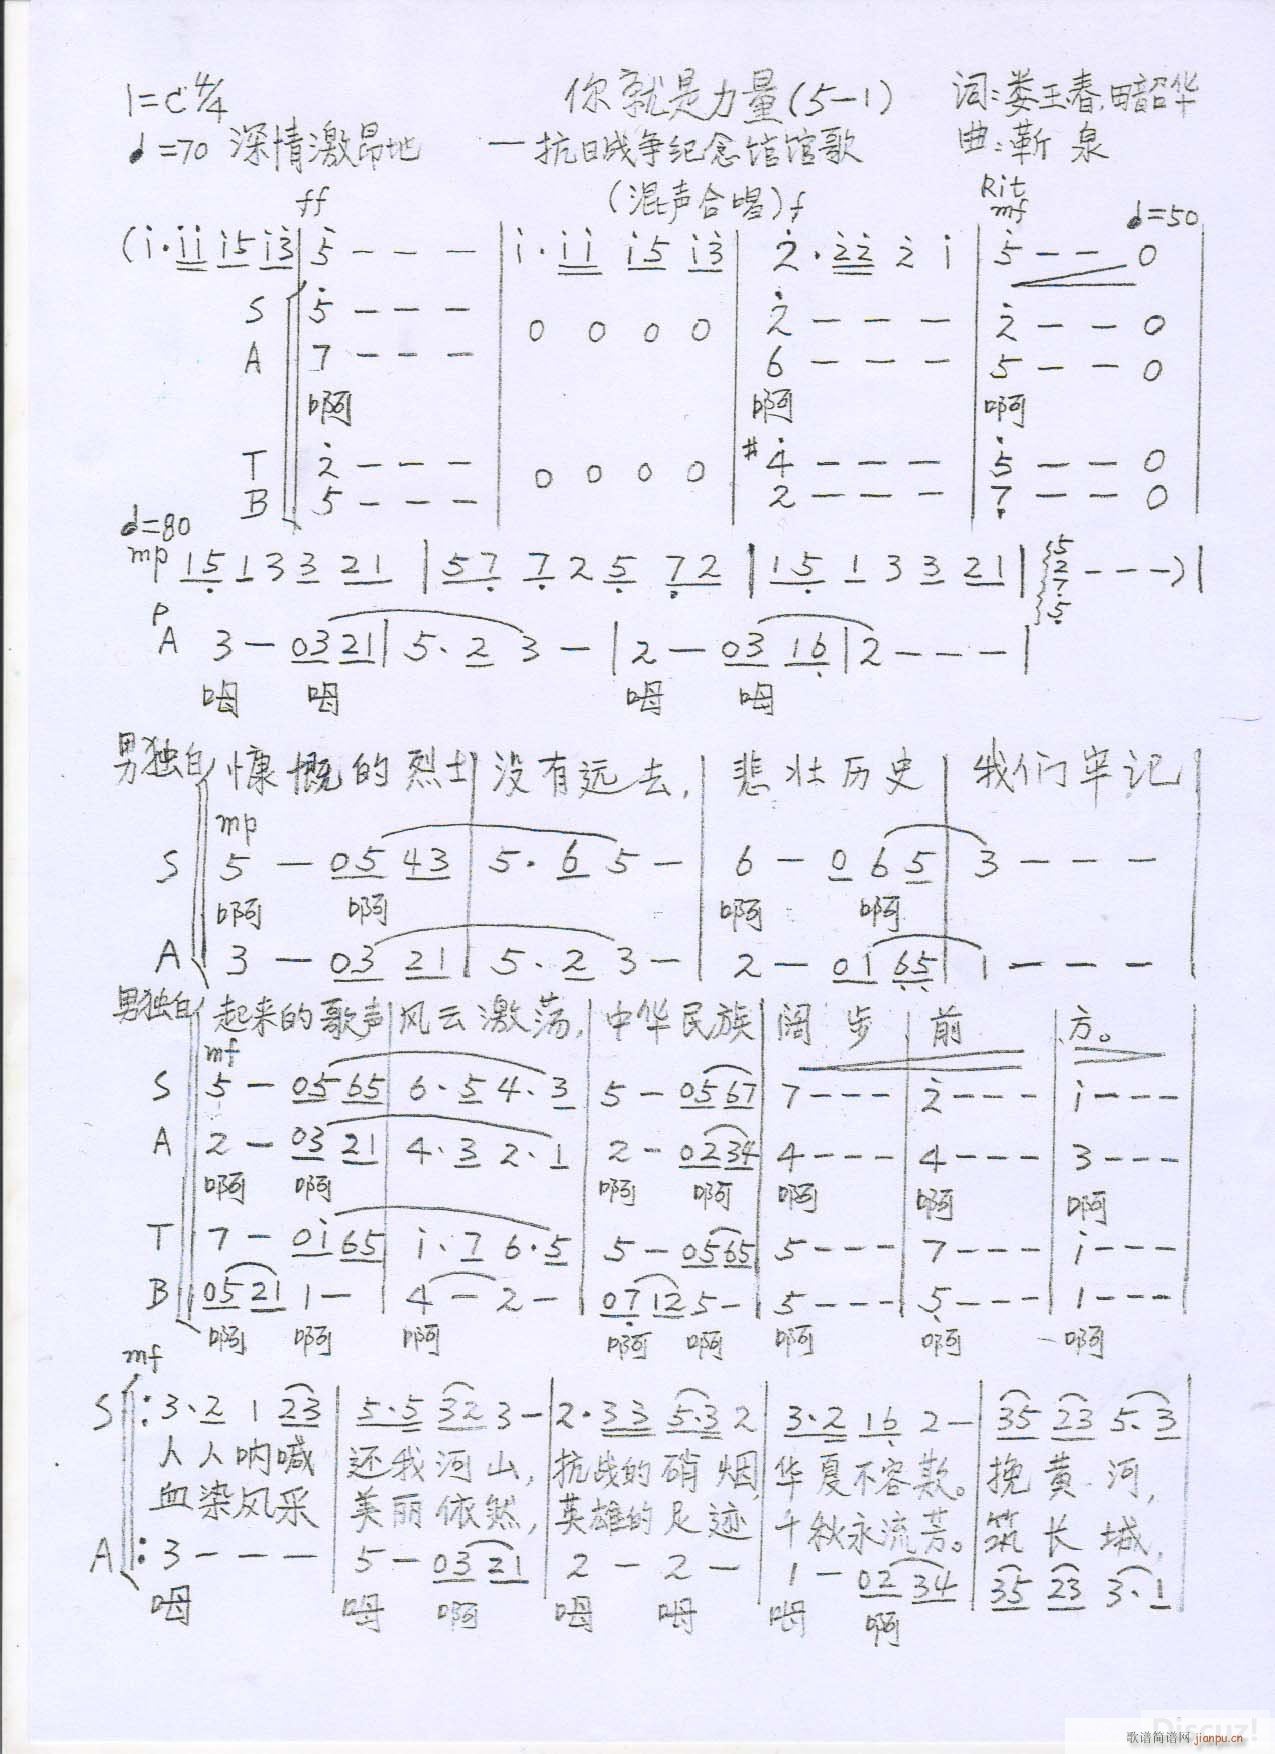 1=C 4/4 你就是力量(5-1) 词:娄玉春、田韶华
♩=70 深情激昂地 —抗日战争纪念馆馆歌 曲:靳泉
ff (混声合唱) f Rit mf ♩=50
(i·ii i5 i3 | 5 - - - | i·ii i5 i3 | 2·22 2 i | 5 - - 0
S 5 - - - | 0 0 0 0 | 2 - - - | 2 - - 0
A 7 - - - | 6 - - - | 5 - - 0
啊 啊 啊
T 2 - - - | 0 0 0 0 | #4 - - - | 5 - - 0
B 5 - - - | 2 - - - | 7 - - 0
♩=80
mp 15 133 21 | 57 725 72 | 15 133 21 | 5 2 7 5 - - -) |
P
A 3 - 03 21 | 5·2 3 - | 2 - 03 16 | 2 - - - |
呣 呣 呣 呣
男独白 慷慨的烈士 | 没有远去, | 悲壮历史 | 我们牢记
mp
S 5 - 05 43 | 5·6 5 - | 6 - 0 65 | 3 - - -
啊 啊 啊 啊
A 3 - 03 21 | 5·2 3 - | 2 - 01 65 | 1 - - -
男独白 起来的歌声 | 风云激荡, | 中华民族 | 阔步 | 前 | 方。
mf
S 5 - 05 65 | 6·5 4·3 | 5 - 05 67 | 7 - - - | 2 - - - | i - - -
A 2 - 03 21 | 4·3 2·1 | 2 - 02 34 | 4 - - - | 4 - - - | 3 - - -
啊 啊 啊 啊 啊 啊 啊
T 7 - 0i 65 | i·7 6·5 | 5 - 05 65 | 5 - - - | 7 - - - | i - - -
B 05 21 1 - | 4 - 2 - | 07 12 5 - | 5 - - - | 5 - - - | 1 - - -
啊 啊 啊 啊 啊 啊 啊 啊
mf
S : 3·2 1 23 | 5·5 32 3 - | 2·33 5·3 2 | 3·2 16 2 - | 35 23 5·3
人人呐喊 还我河山, 抗战的硝烟, 华夏不容欺。 挽黄河,
血染风采 美丽依然, 英雄的足迹 千秋永流芳。 筑长城,
A : 3 - - - | 5 - 03 21 | 2 - 2 - | 1 - 02 34 | 35 23 3·1
呣 呣 啊 呣 呣 呣 啊
Discuz!
歌谱简谱网 jianpu.cn